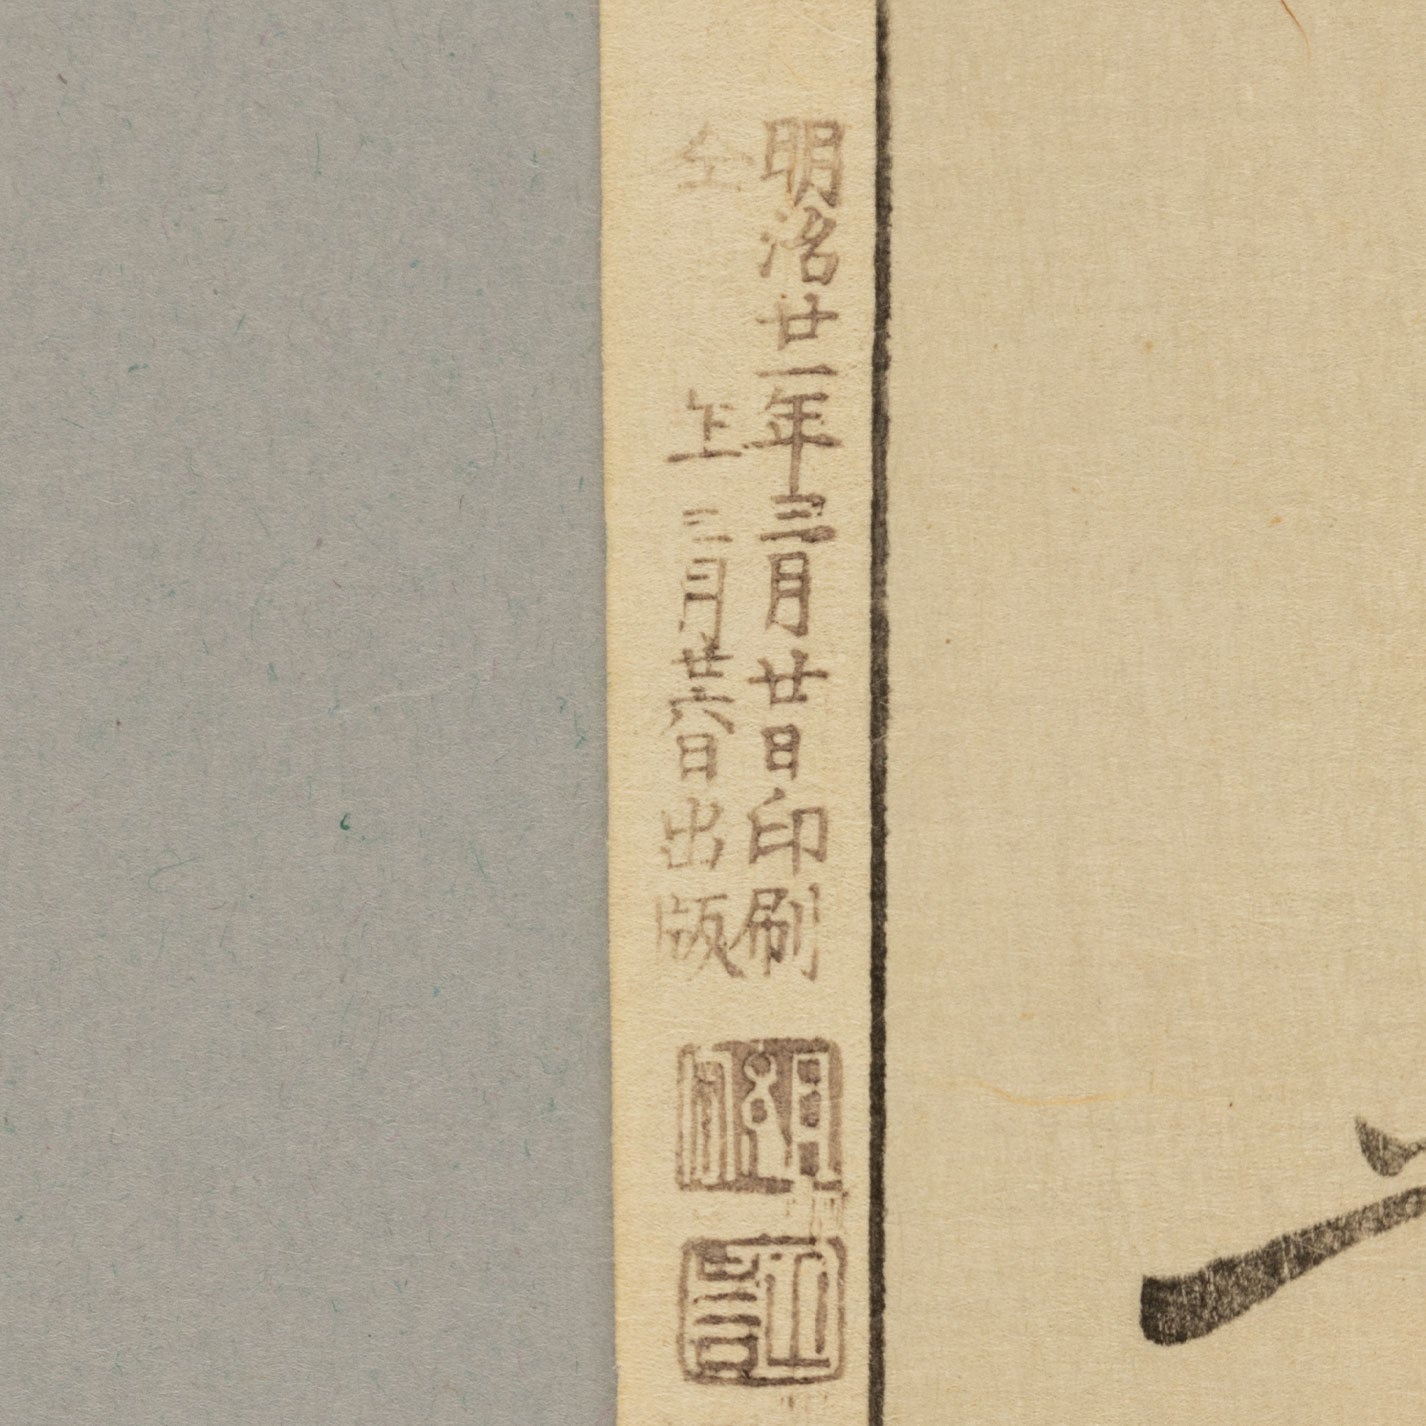 明治廿一年三月廿日印刷
仝 上 三月廿六日出版